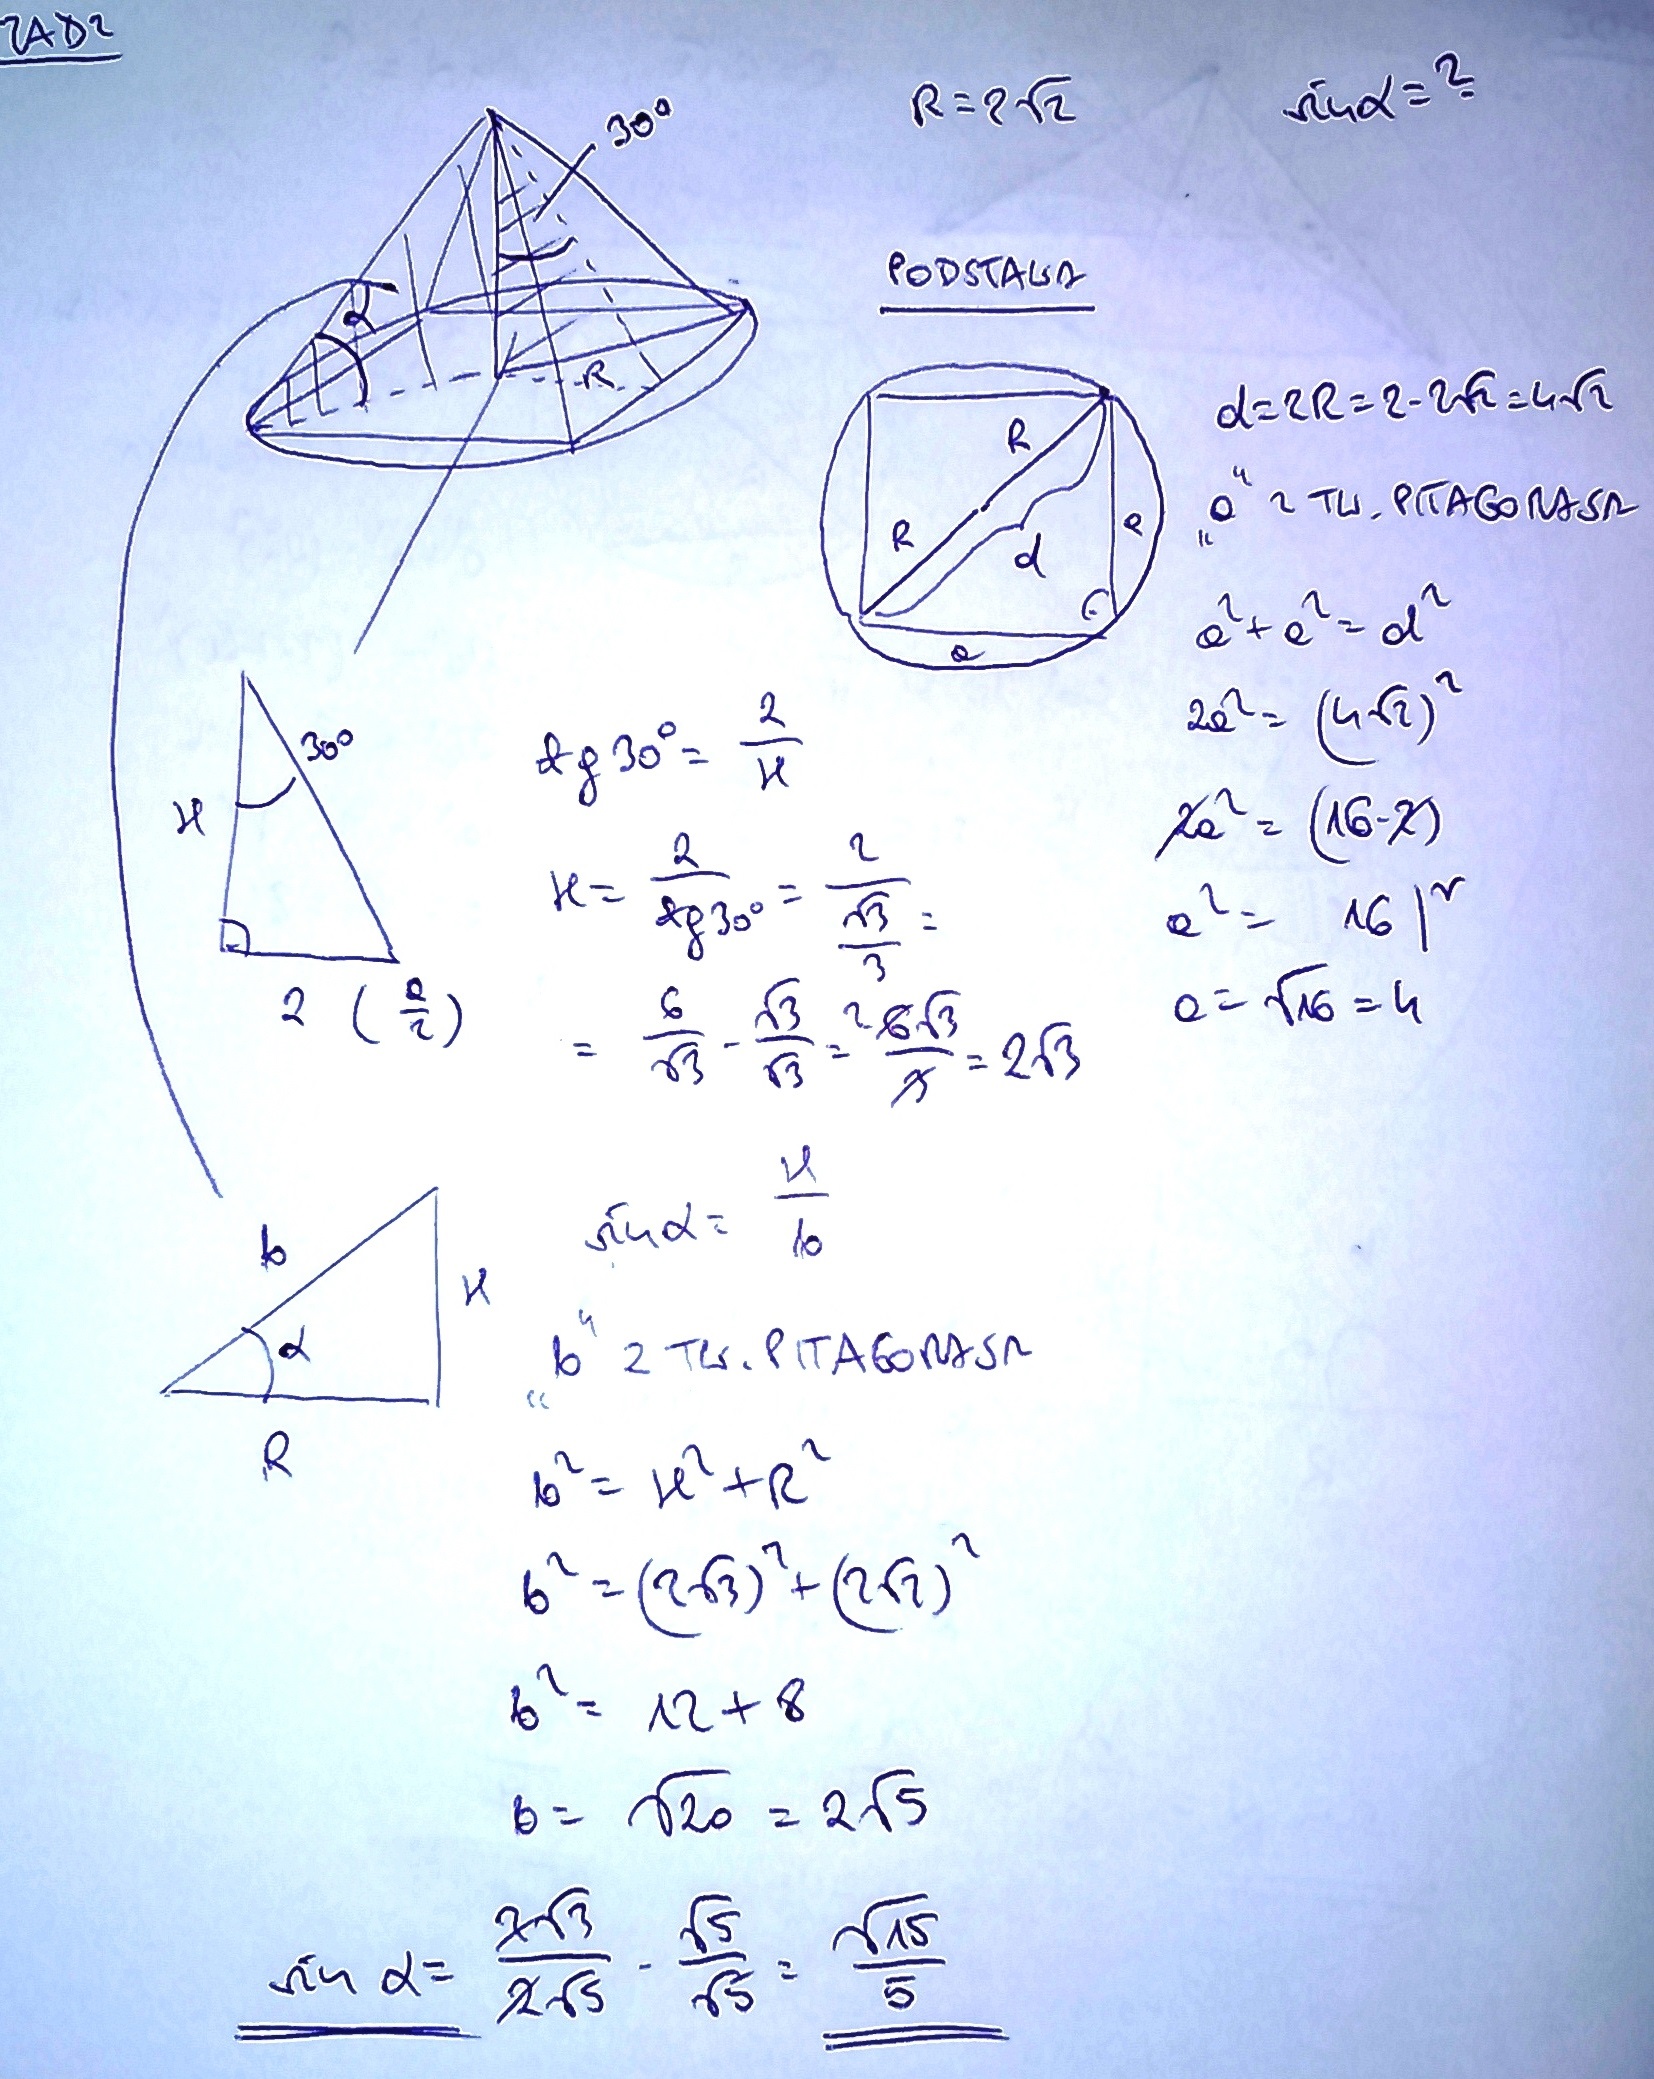 ZAD2
30°
R=2√2
sin α = ?
α
R
PODSTAWA
R
R
d
a
a
d=2R=2·2√2=4√2
„a" z TW. PITAGORASA
a²+a²=d²
2a²=(4√2)²
2a²=(16·2)
a²= 16 |√
a=√16=4
H
30°
2 (a/2)
tg30°=2/H
H=2/tg30°=2/(√3/3)=
=6/√3·√3/√3=²6√3/3=2√3
b
α
H
R
sin α=H/b
„b" z TW. PITAGORASA
b²=H²+R²
b²=(2√3)²+(2√2)²
b²=12+8
b=√20=2√5
sin α=2√3/2√5·√5/√5=√15/5